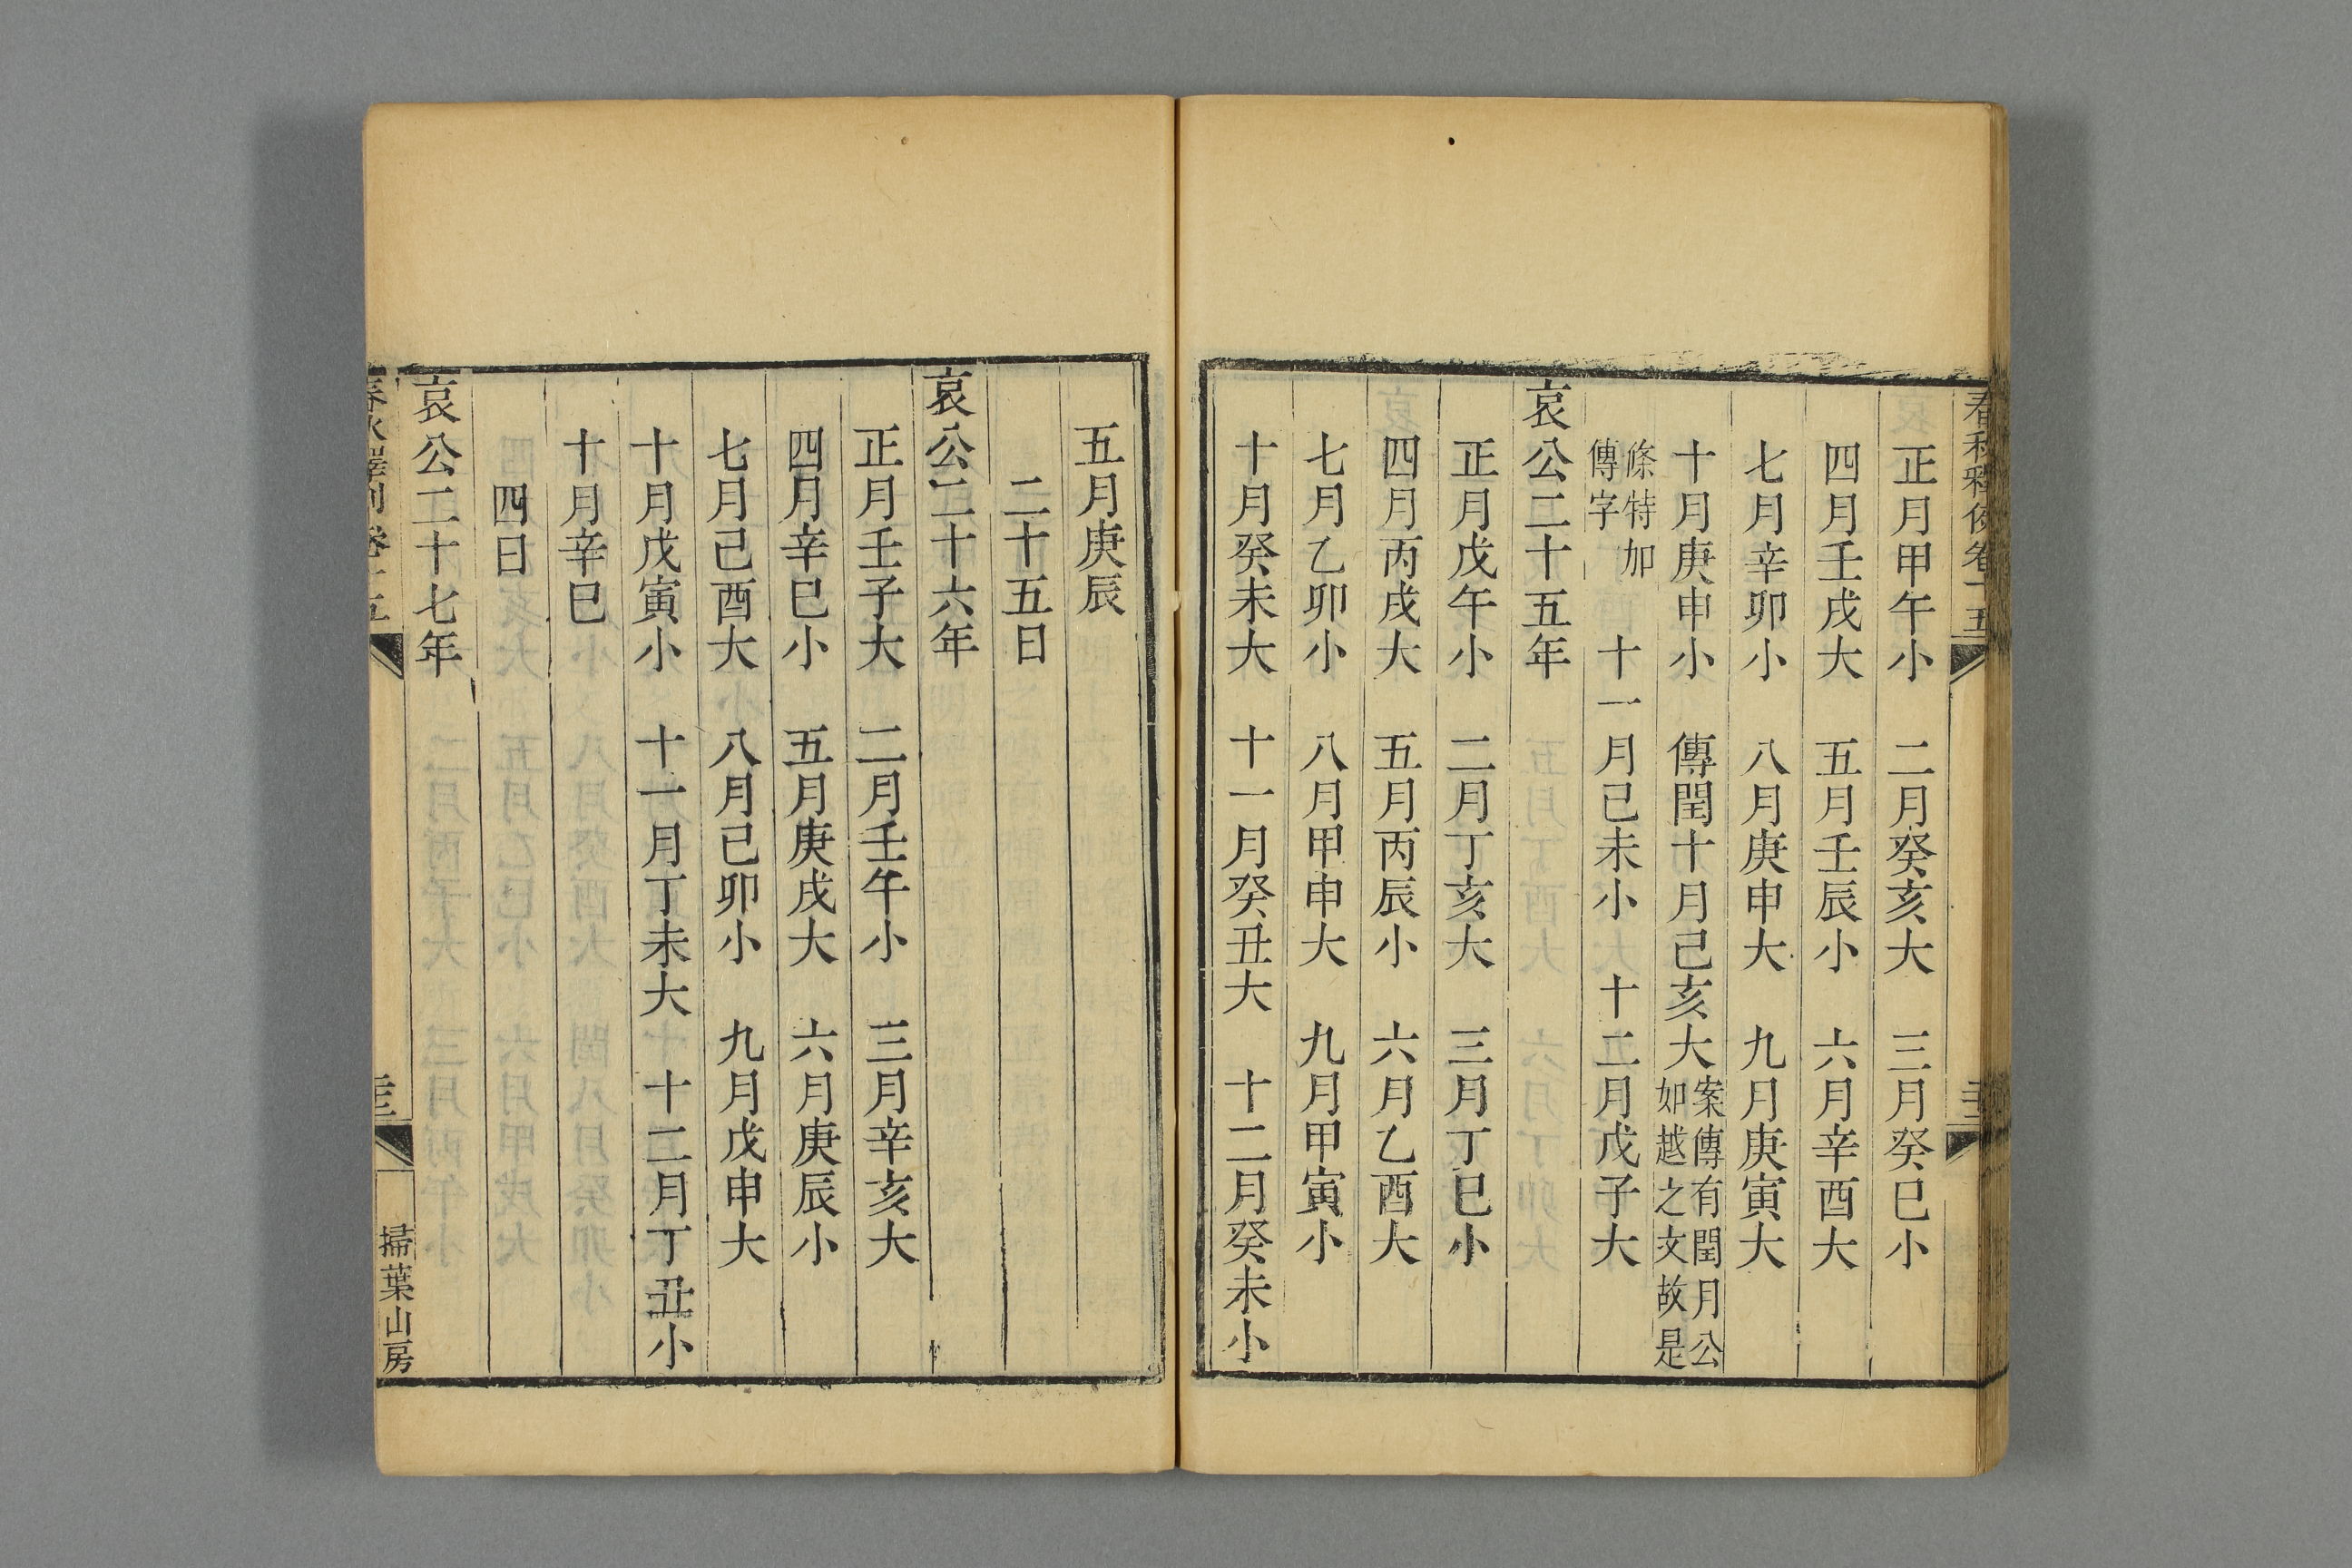 春秋釋例卷十五
正月甲午小　二月癸亥大　三月癸巳小
四月壬戌大　五月壬辰小　六月辛酉大
七月辛卯小　八月庚申大　九月庚寅大
十月庚申小　傳閏十月己亥大案傳有閏月公如越之文故是
條特加傳字　十一月己未小　十二月戊子大
哀公二十五年
正月戊午小　二月丁亥大　三月丁巳小
四月丙戌大　五月丙辰小　六月乙酉大
七月乙卯小　八月甲申大　九月甲寅小
十月癸未大　十一月癸丑大　十二月癸未小
五月庚辰
二十五日
哀公二十六年
正月壬子大　二月壬午小　三月辛亥大
四月辛巳小　五月庚戌大　六月庚辰小
七月己酉大　八月己卯小　九月戊申大
十月戊寅小　十一月丁未大　十二月丁丑小
十月辛巳
四日
哀公二十七年
春秋釋例卷十五
掃葉山房